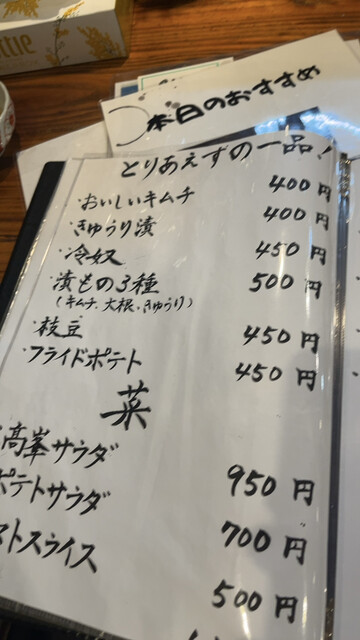 ttle
本日のおすすめ
とりあえずの一品!
・おいしいキムチ 400円
・きゅうり漬 400円
・冷奴 450円
・漬もの3種 500円
(キムチ、大根、きゅうり)
・枝豆 450円
・フライドポテト 450円
菜
高峯サウダ 950円
ポテトサウダ 700円
マトスライス 500円